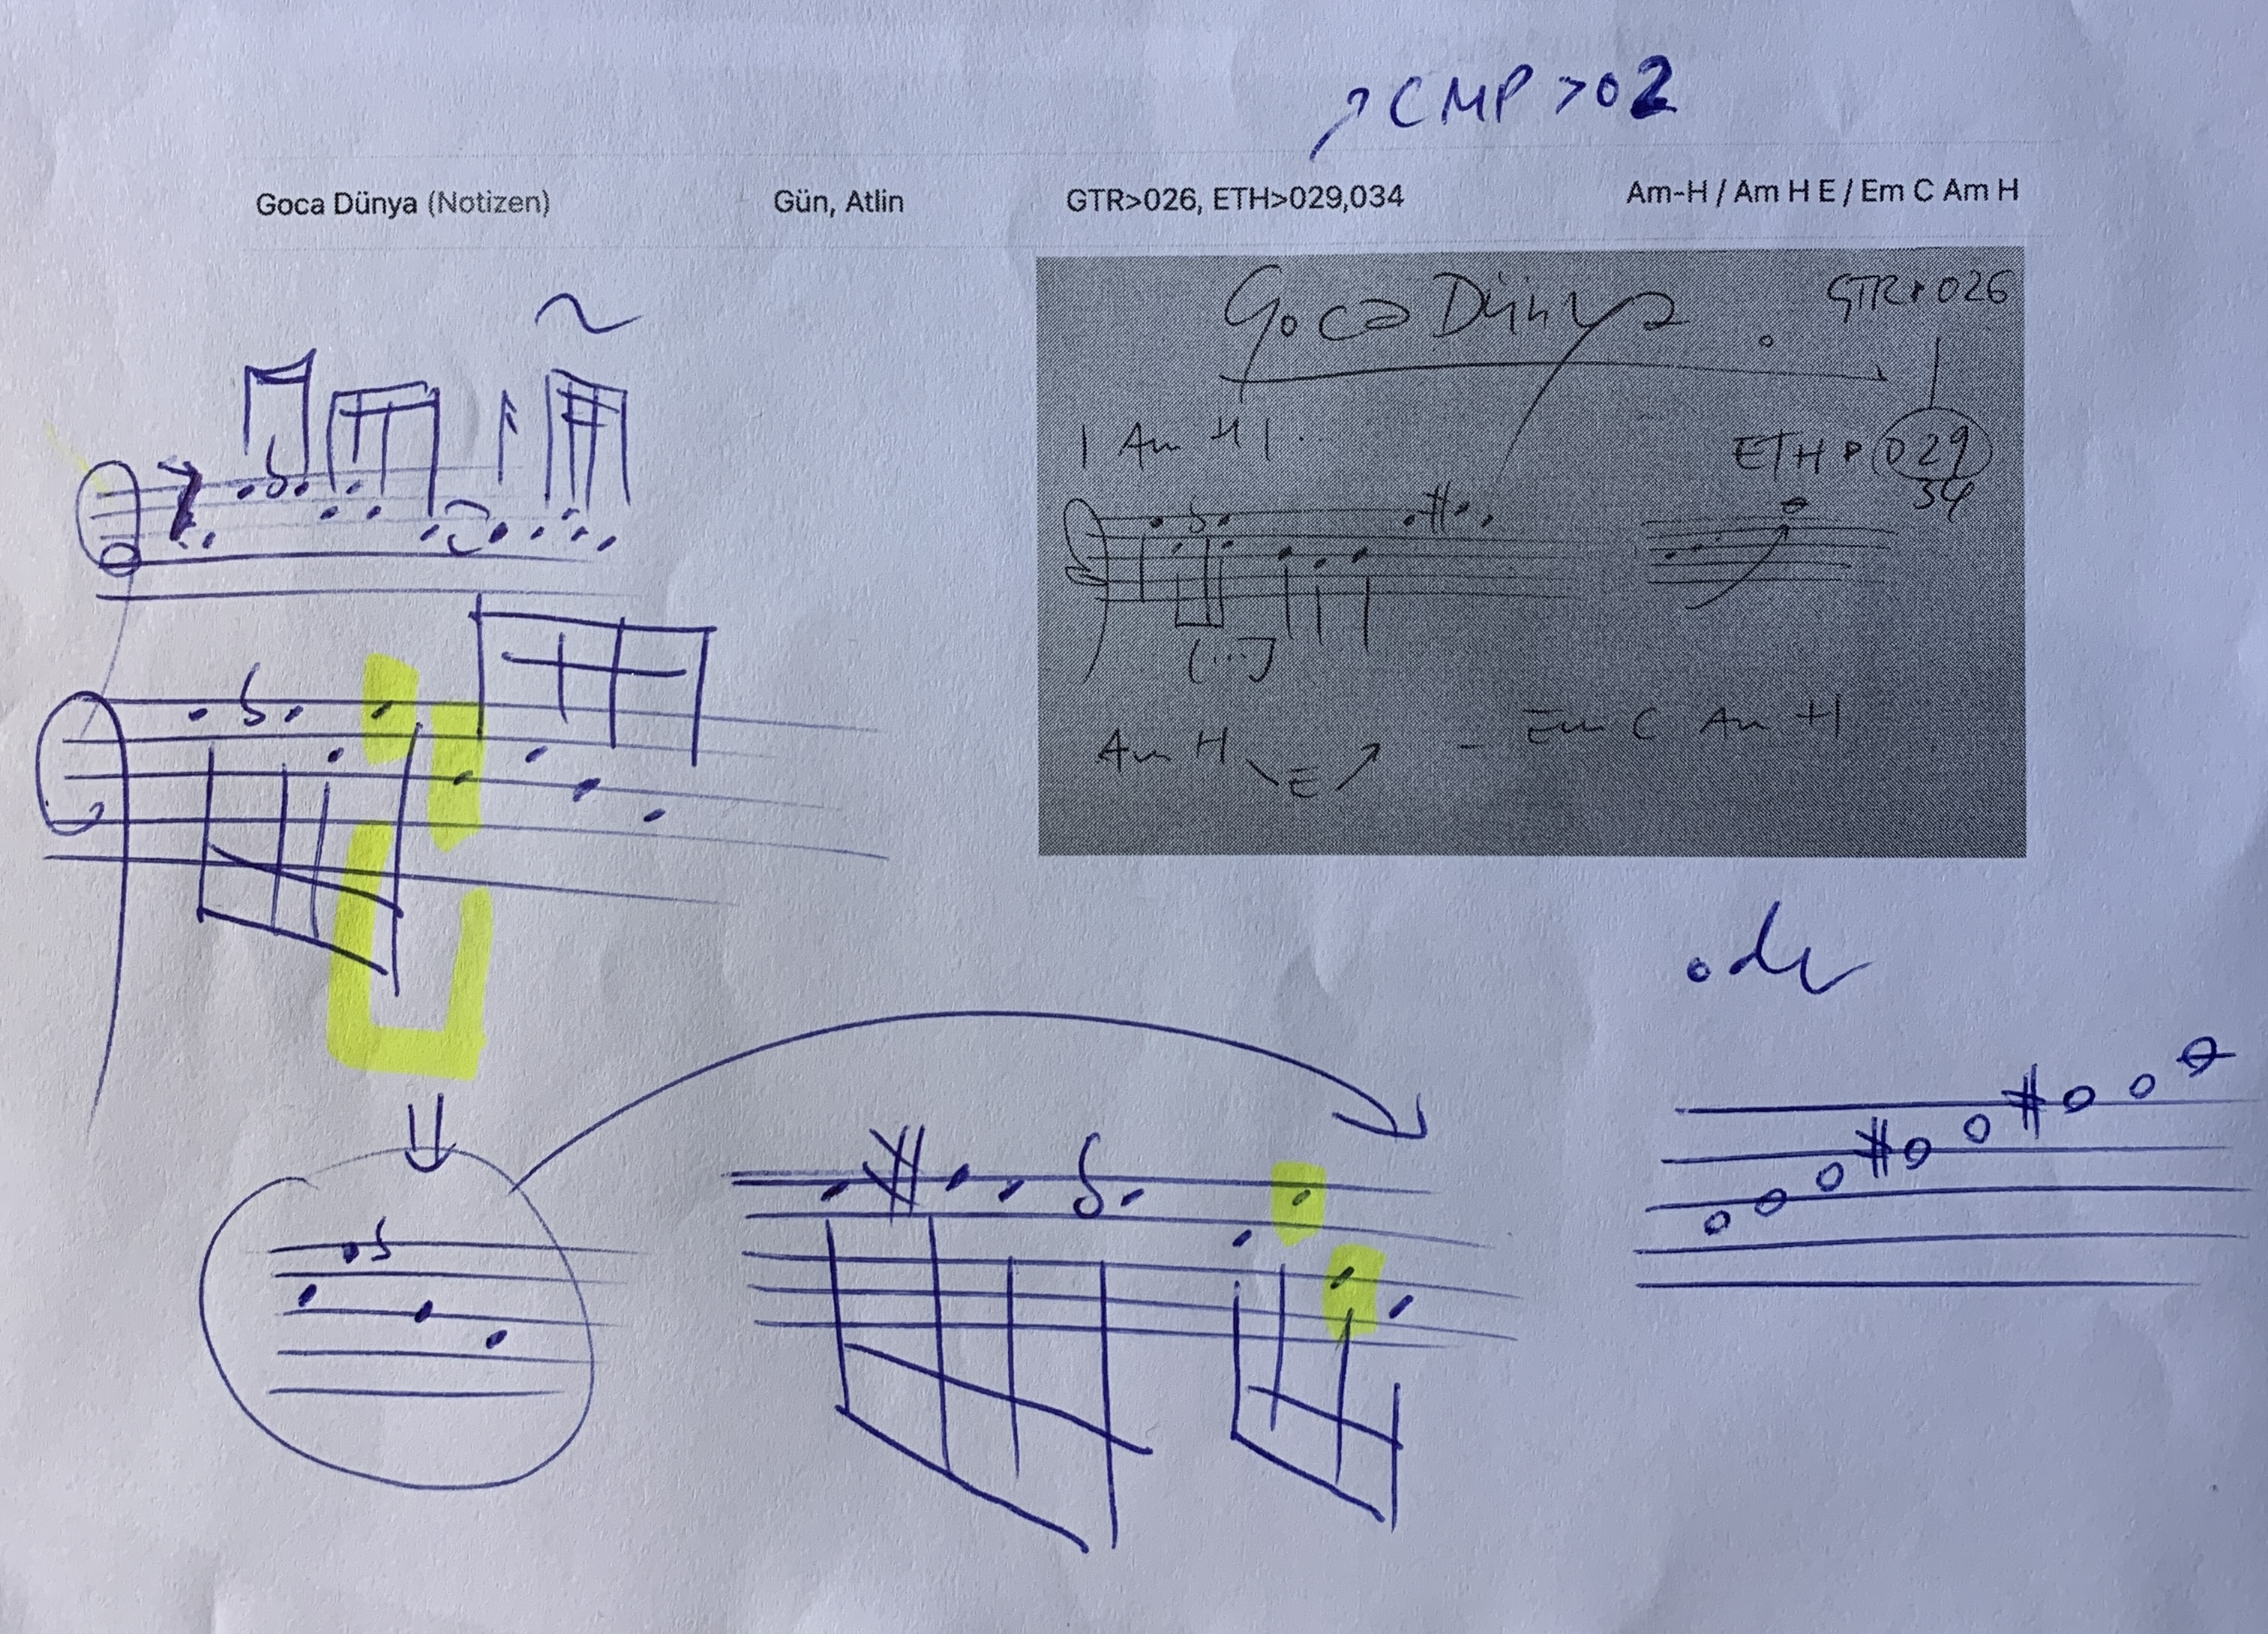 ↗ CMP > 02
Goca Dünya (Notizen) Gün, Atlin GTR>026, ETH>029,034 Am-H / Am H E / Em C Am H
Goca Dünya GTR▸026
| Am H |
ETH▸029
34
(...]
Am H E ↗ - Em C Am H
oder